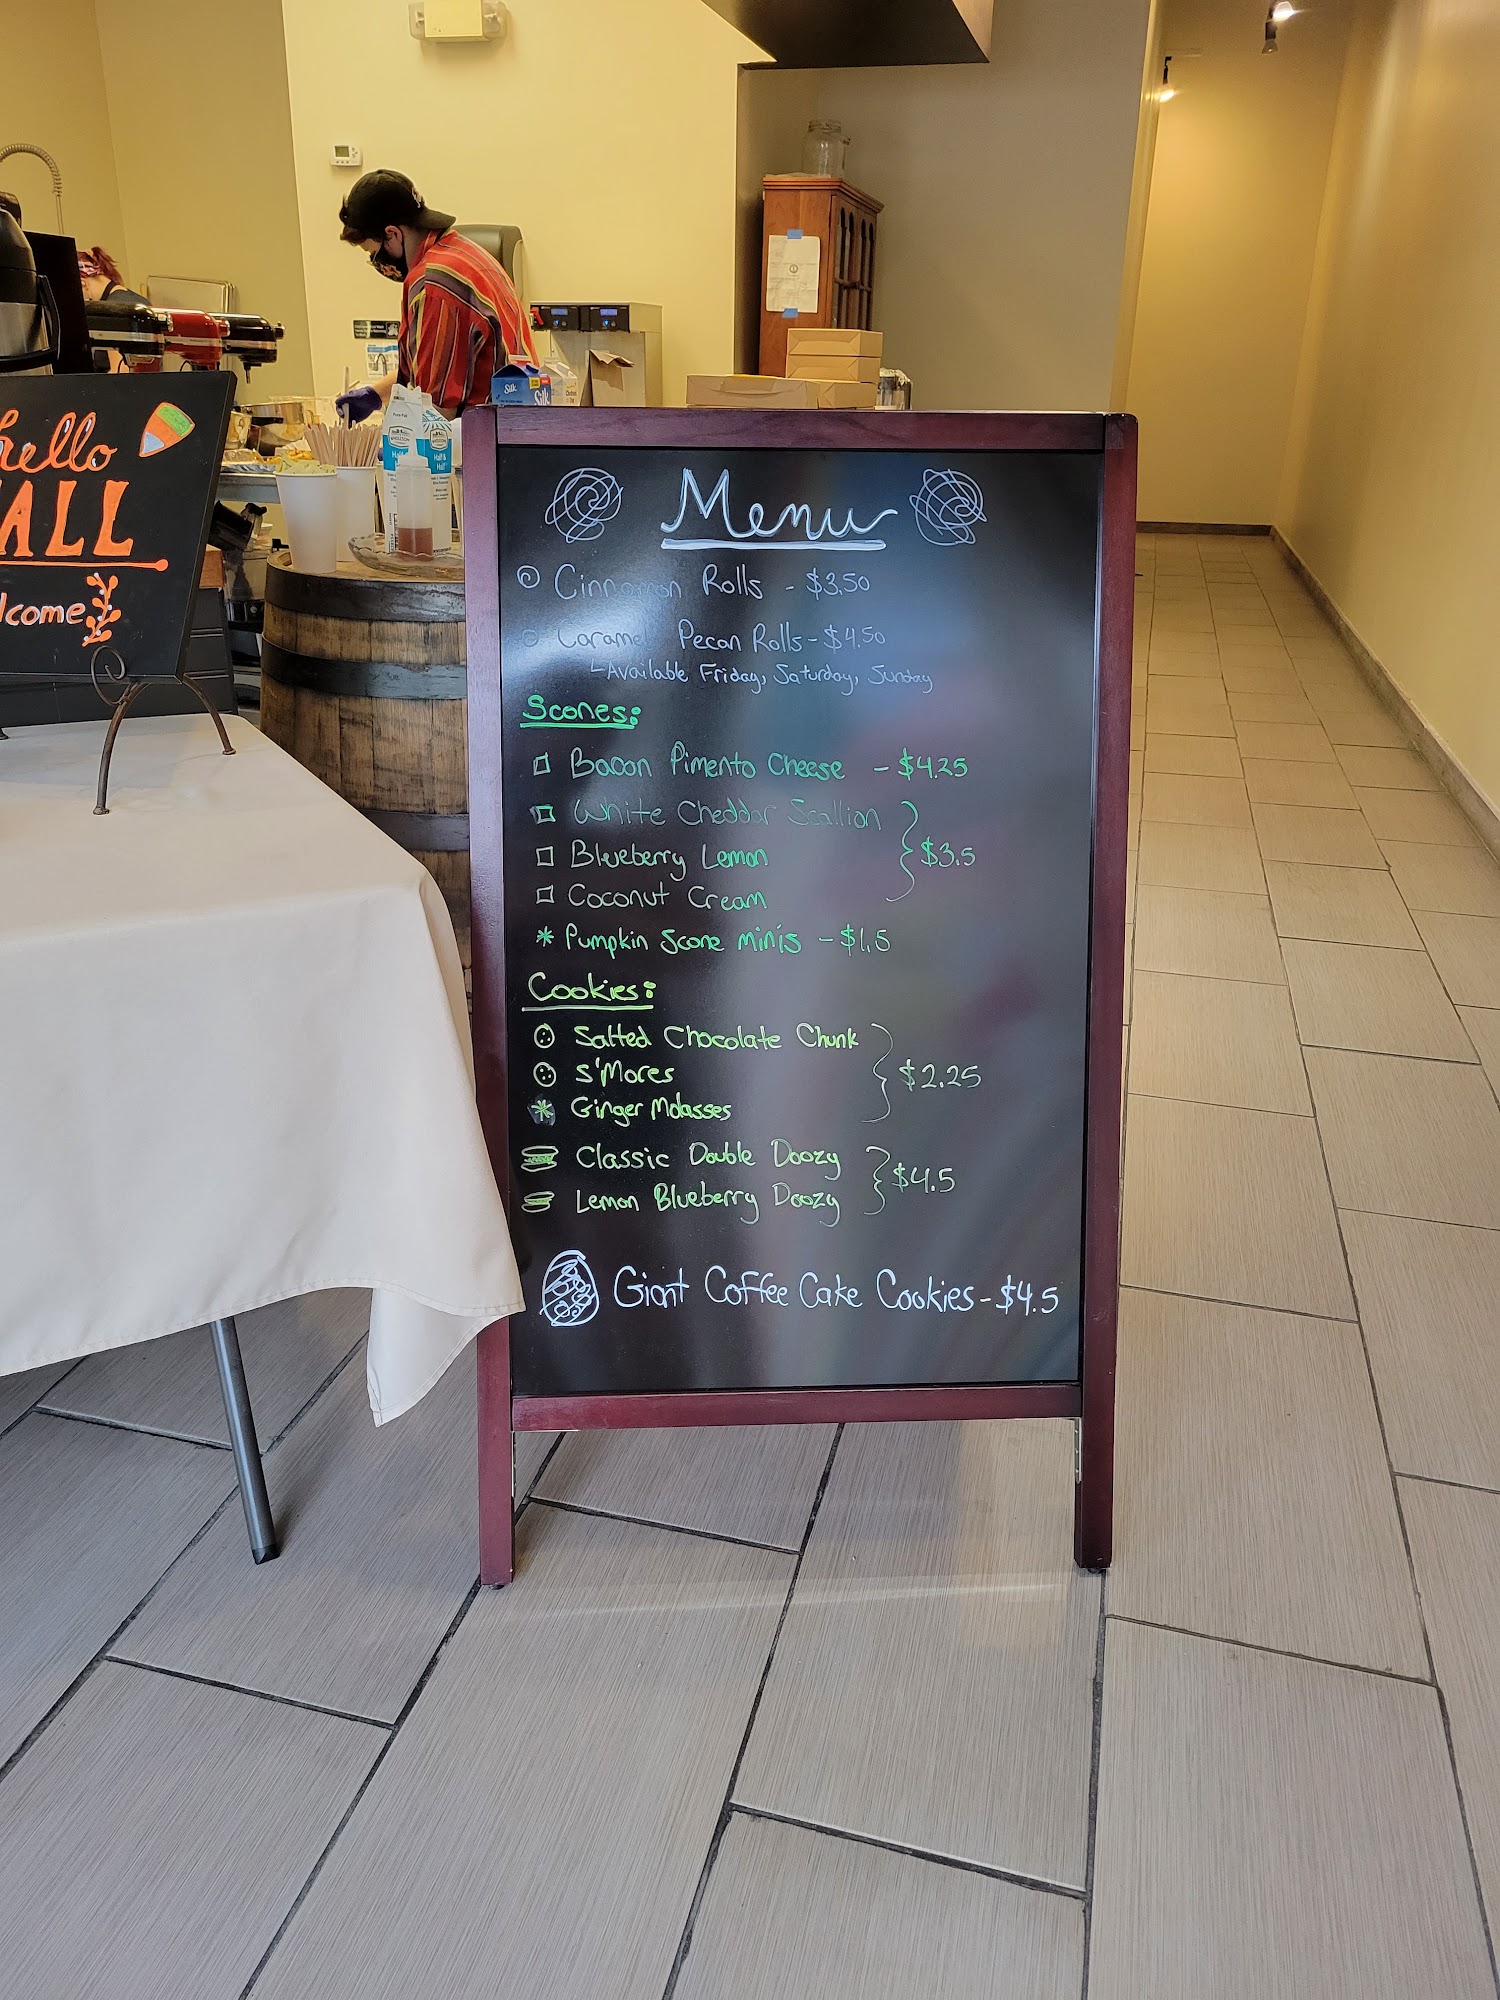 hello
ALL
lcome
Silk
Silk
Half &
Half
Menu
Cinnamon Rolls - $3.50
Caramel Pecan Rolls - $4.50
Available Friday, Saturday, Sunday
Scones:
Bacon Pimento Cheese - $4.25
White Cheddar Scallion
Blueberry Lemon
$3.5
Coconut Cream
* Pumpkin Scone minis - $1.5
Cookies:
Salted Chocolate Chunk
S'Mores
$2.25
Ginger Molasses
Classic Double Doozy
$4.5
Lemon Blueberry Doozy
Giant Coffee Cake Cookies - $4.5